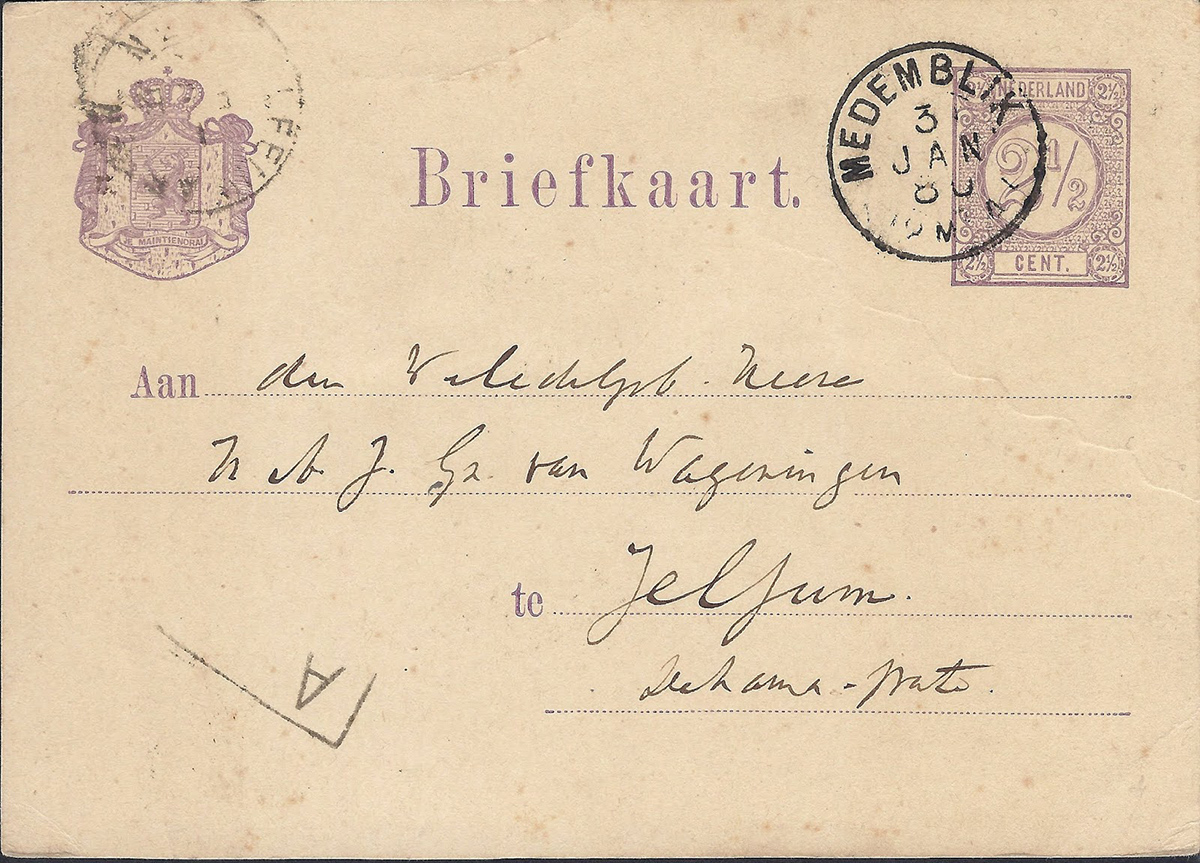 JE MAINTIENDRAI
Briefkaart.
MEDEMBLIK
3
JAN
80
NEDERLAND
2½ 2½
2½
2½ CENT. 2½
Aan den Heere
N A. J. Gz. van Wageningen
te Jelsum.
Dekama-state.
A